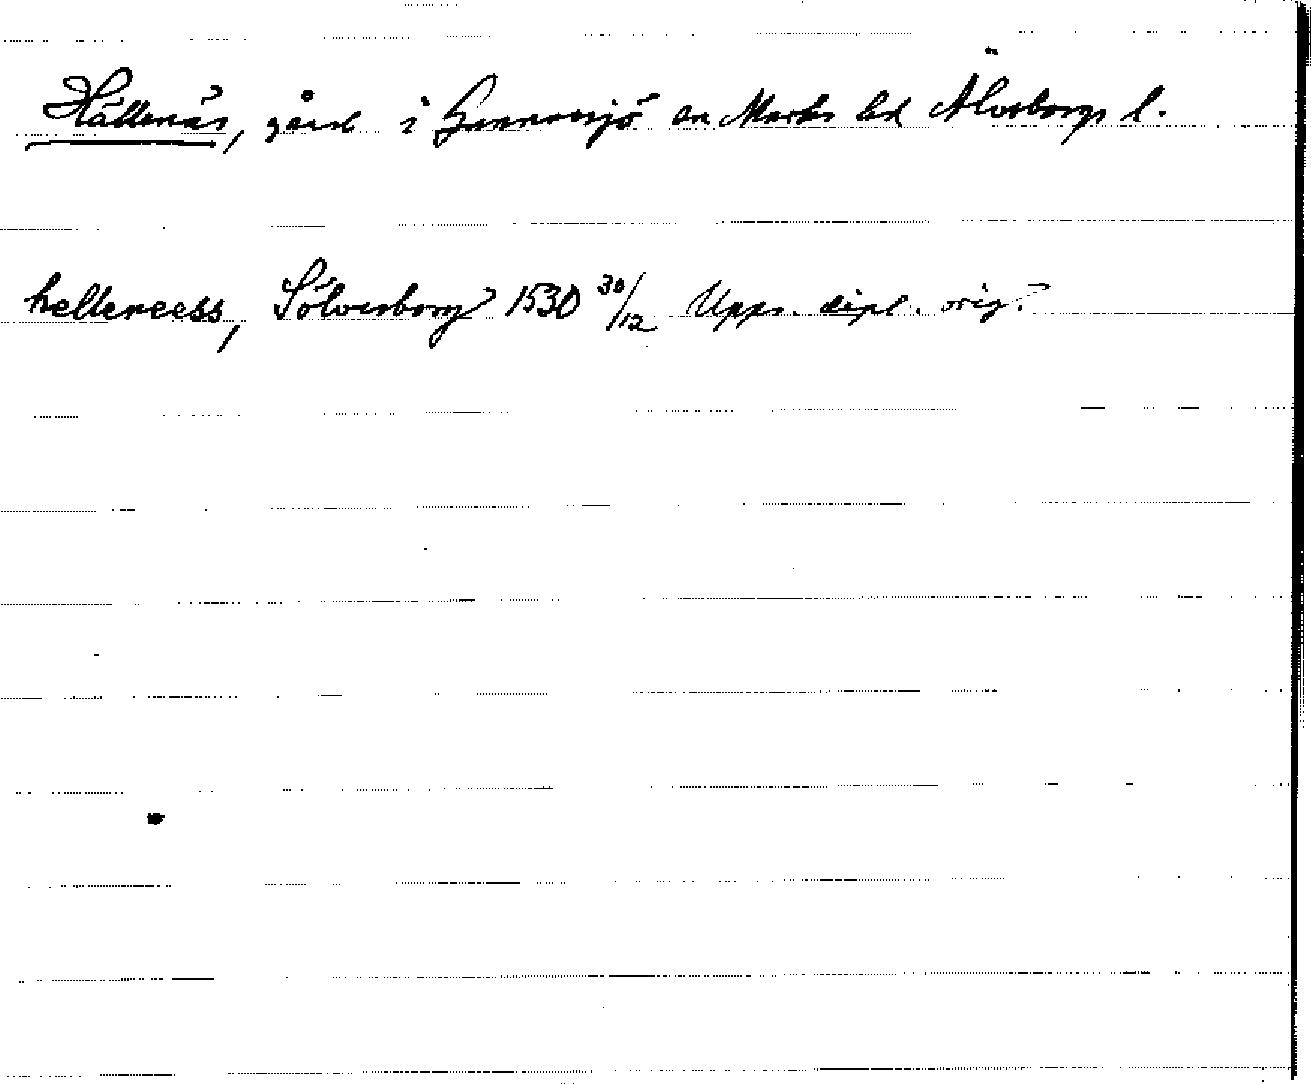 Hällenäs, gård i Gunnarsjö sn Marks hd Älvsborgs l.
helleneess, Sölvesborg 1530 30/12 Upps. dipl. orig.